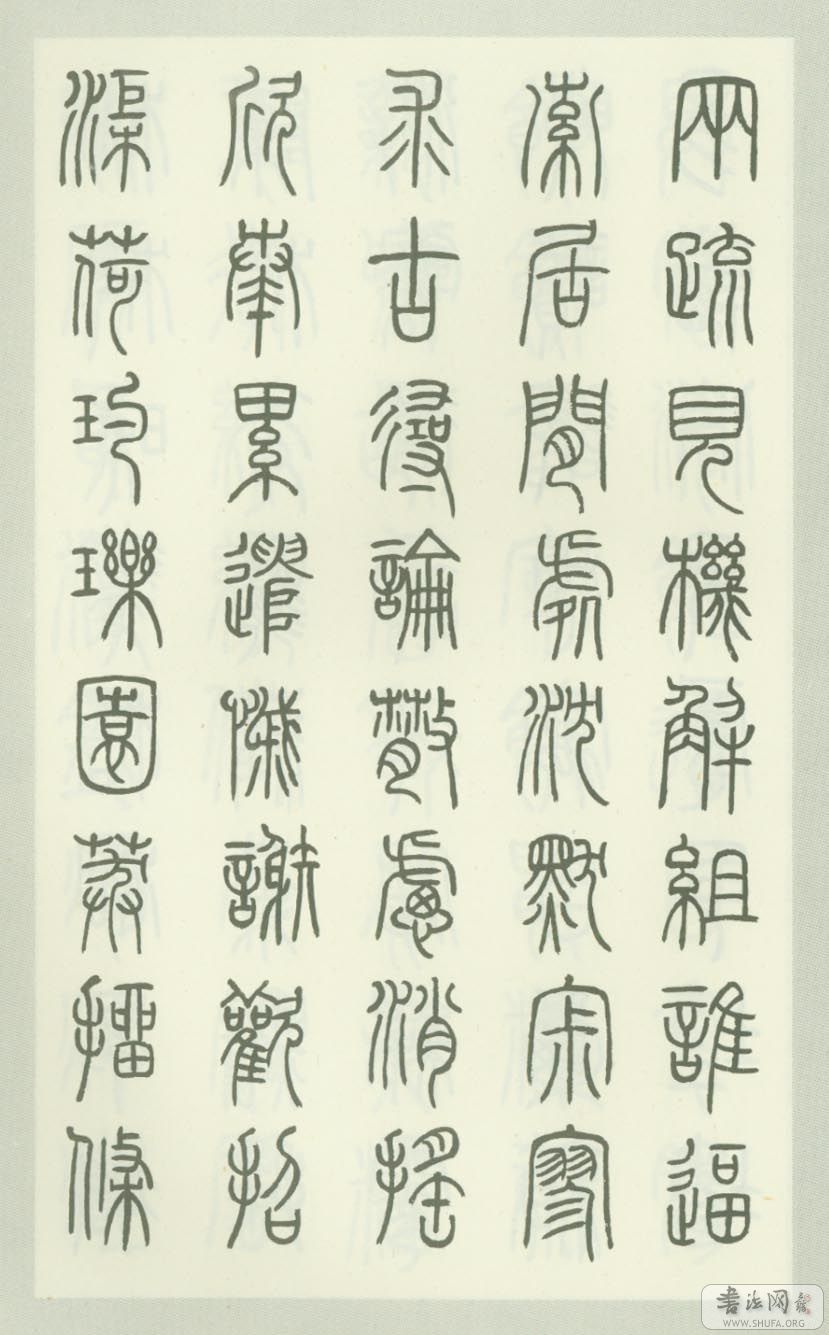 兩疏見機解組誰逼
索居閒處沈默寂寥
求古尋論散慮消搖
欣奏累遣慽謝歡招
渠荷玓瓅園莽抽條
书法网
WWW.SHUFA.ORG